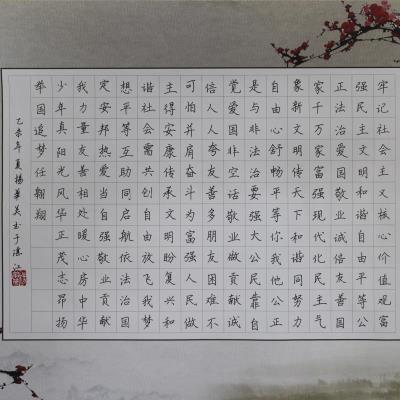 牢记社会主义核心价值观富
强民主文明和谐自由平等公
正法治爱国敬业诚信友善国
家千万家富强现代化民主气
象新文明传天下和谐同努力
自由心舒畅平等你我他公正
是与非法治要强大公民靠自
觉爱国非空话敬业做贡献诚
信人人夸友善多朋友困难不
可怕并肩奋斗为富强人民做
主得安康传承文明盼复兴和
谐社会需共创自由放飞我梦
想平等互助同启航依法治国
定安邦热爱当自强敬业贡献
我力量友善相处暖心房中华
少年真阳光风华正茂志昂扬
举国追梦任翱翔
乙未年夏揚華美书于湛江